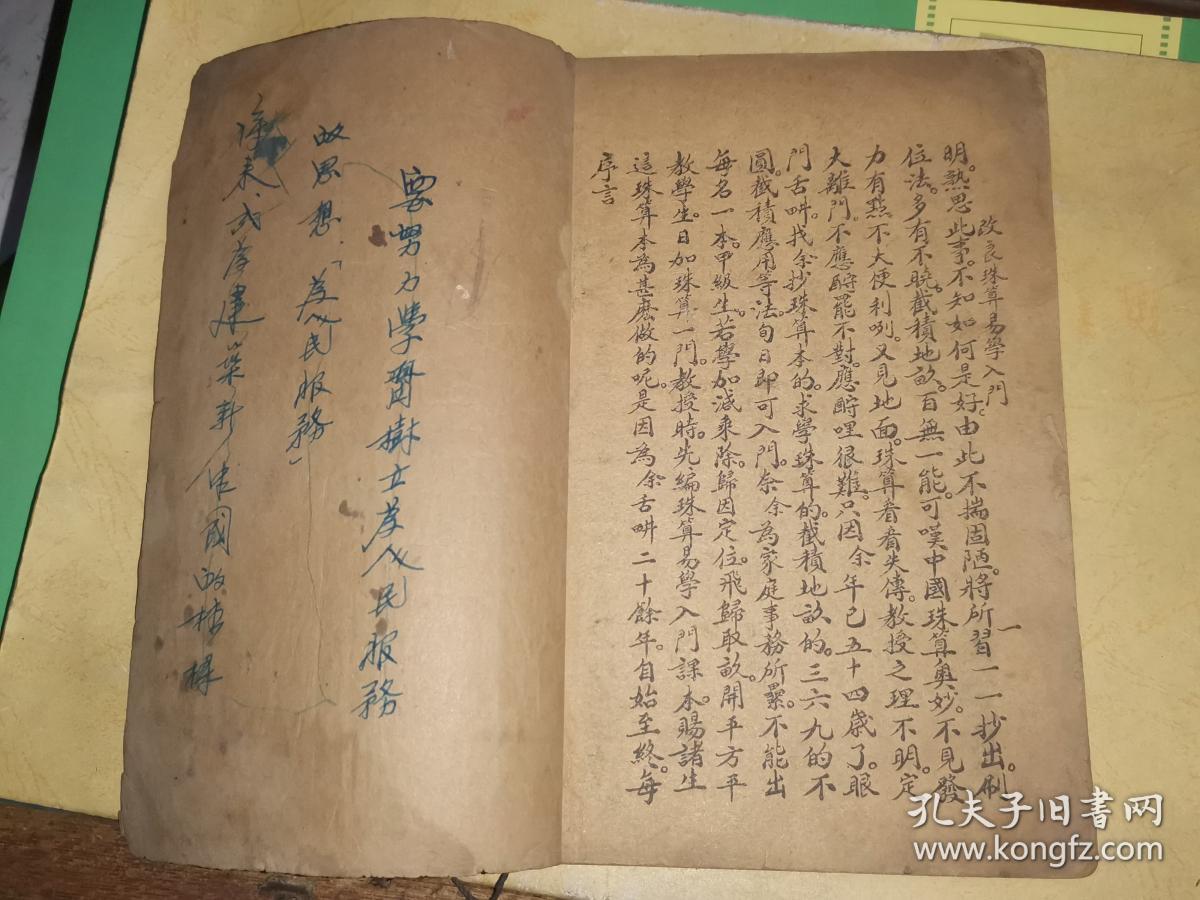 要努力學習樹立為人民服務
的思想「為人民服務」
来、成為建築新國的榜樣
改良珠算易學入門 一
序言
這珠算本為甚麽做的呢。是因為余舌畊二十餘年。自始至終。每
教學生。日加珠算一門。教授時。先編珠算易學入門課本。賜諸生
每名一本。甲級生。若學加減乘除。歸因定位。飛歸取畝。開平方平
圓。截積應用等法。旬日即可入門。奈余為家庭事務所累。不能出
門舌畊。找余抄珠算本的。求學珠算的。截積地畝的。三六九的不
大離門。不應酧罷不對。應酧哩很難。只因余年已五十四歲了。眼
力有點不大便利咧。又見地面。珠算看看失傳。教授之理不明。定
位法。多有不曉。截積地畝。百無一能。可嘆中國珠算奧妙。不見發
明。熟思此事。不知如何是好。由此不揣固陋。將所習一一抄出。刷
孔夫子旧书网
www.kongfz.com